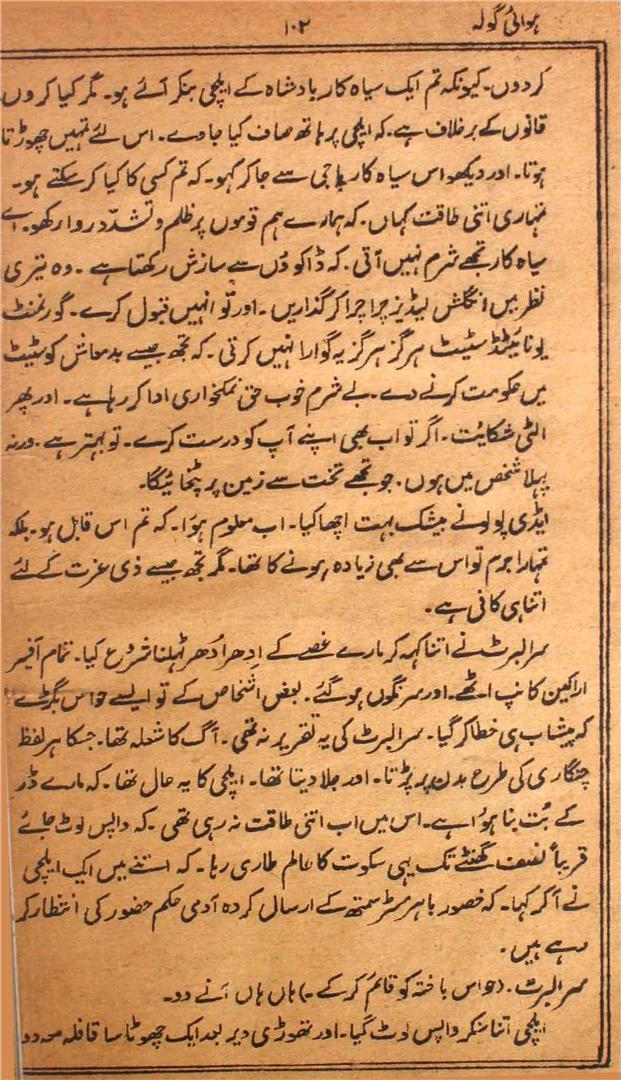 ہوائی گولہ ۱۰۲
کردوں۔ کیونکہ تم ایک سیاہ کار بادشاہ کے ایلچی بنکر آئے ہو۔ مگر کیا کروں
قانوں کے برخلاف ہے۔ کہ ایلچی پر ہاتھ صاف کیا جاوے۔ اس لئے تمہیں چھوڑتا
ہوتا۔ اور دیکھو اس سیاہ کار پاجی سے جاکر کہو۔ کہ تم کسی کا کیا کر سکتے ہو۔
تمہاری اتنی طاقت کہاں۔ کہ ہمارے ہم قوموں پر ظلم و تشدّد روا رکھو۔ اے
سیاہ کار تجھے شرم نہیں آتی۔ کہ ڈاکوؤں سے سازش رکھتا ہے۔ وہ تیری
نظر میں انگلش لیڈیز چرا چرا کر گذاریں۔ اور تُو انہیں قبول کرے۔ گورنمنٹ
یونائیٹڈ سٹیٹ ہرگز ہرگز یہ گوارا نہیں کرتی۔ کہ تجھ جیسے بدمعاش کو سٹیٹ
میں حکومت کرنے دے۔ بے شرم خوب حق نمکخواری ادا کر رہا ہے۔ اور پھر
الٹی شکائت۔ اگر تو اب بھی اپنے آپ کو درست کرے۔ تو بہتر ہے۔ ورنہ
پہلا شخص میں ہوں۔ جو تجھے تخت سے زمین پر پٹخائیگا۔
ایڈی پولونے بیشک بہت اچھا کیا۔ اب معلوم ہوا۔ کہ تم اس قابل ہو۔ بلکہ
تمہارا جرم تو اس سے بھی زیادہ ہونے کا تھا۔ مگر تجھ جیسے ذی عزت کے لئے
اتنا ہی کافی ہے۔
سرالبرٹ نے اتنا کہہ کر مارے غصے کے اِدھر اُدھر ٹہلنا شروع کیا۔ تمام آفیسر
اراکین کانپ اٹھے۔ اور سرنگوں ہو گئے۔ بعض اشخاص کے تو ایسے حواس بگڑے
کہ پیشاب ہی خطا کر گیا۔ سرالبرٹ کی یہ تقریر نہ تھی۔ آگ کا شعلہ تھا۔ جسکا ہر لفظ
چنگاری کی طرح بدن پر پڑتا۔ اور جلا دیتا تھا۔ ایلچی کا یہ حال تھا۔ کہ مارے ڈر
کے بُت بنا ہوا ہے۔ اس میں اب اتنی طاقت نہ رہی تھی۔ کہ واپس لوٹ جائے
قریباً نصف گھنٹے تک یہی سکوت کا عالم طاری رہا۔ کہ اتنے میں ایک ایلچی
نے آکر کہا۔ کہ حضور باہر مسٹر سمتھ کے ارسال کردہ آدمی حکم حضور کی انتظار کر
رہے ہیں۔
سرالبرٹ۔ (حواس باختہ کو قائم کرکے۔) ہاں ہاں آنے دو۔
ایلچی اتنا سنکر واپس لوٹ گیا۔ اور تھوڑی دیر بعد ایک چھوٹا سا قافلہ معہ دو